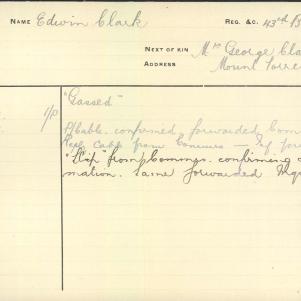 NAME Edwin Clark REG. &C. 43rd B
NEXT OF KIN Mrs George Cla
ADDRESS Mount Torre
"Gassed"
Cable confirmed, forwarded, Com
Cable from
"Slip" from Commgs. confirming
mation. Same forwarded